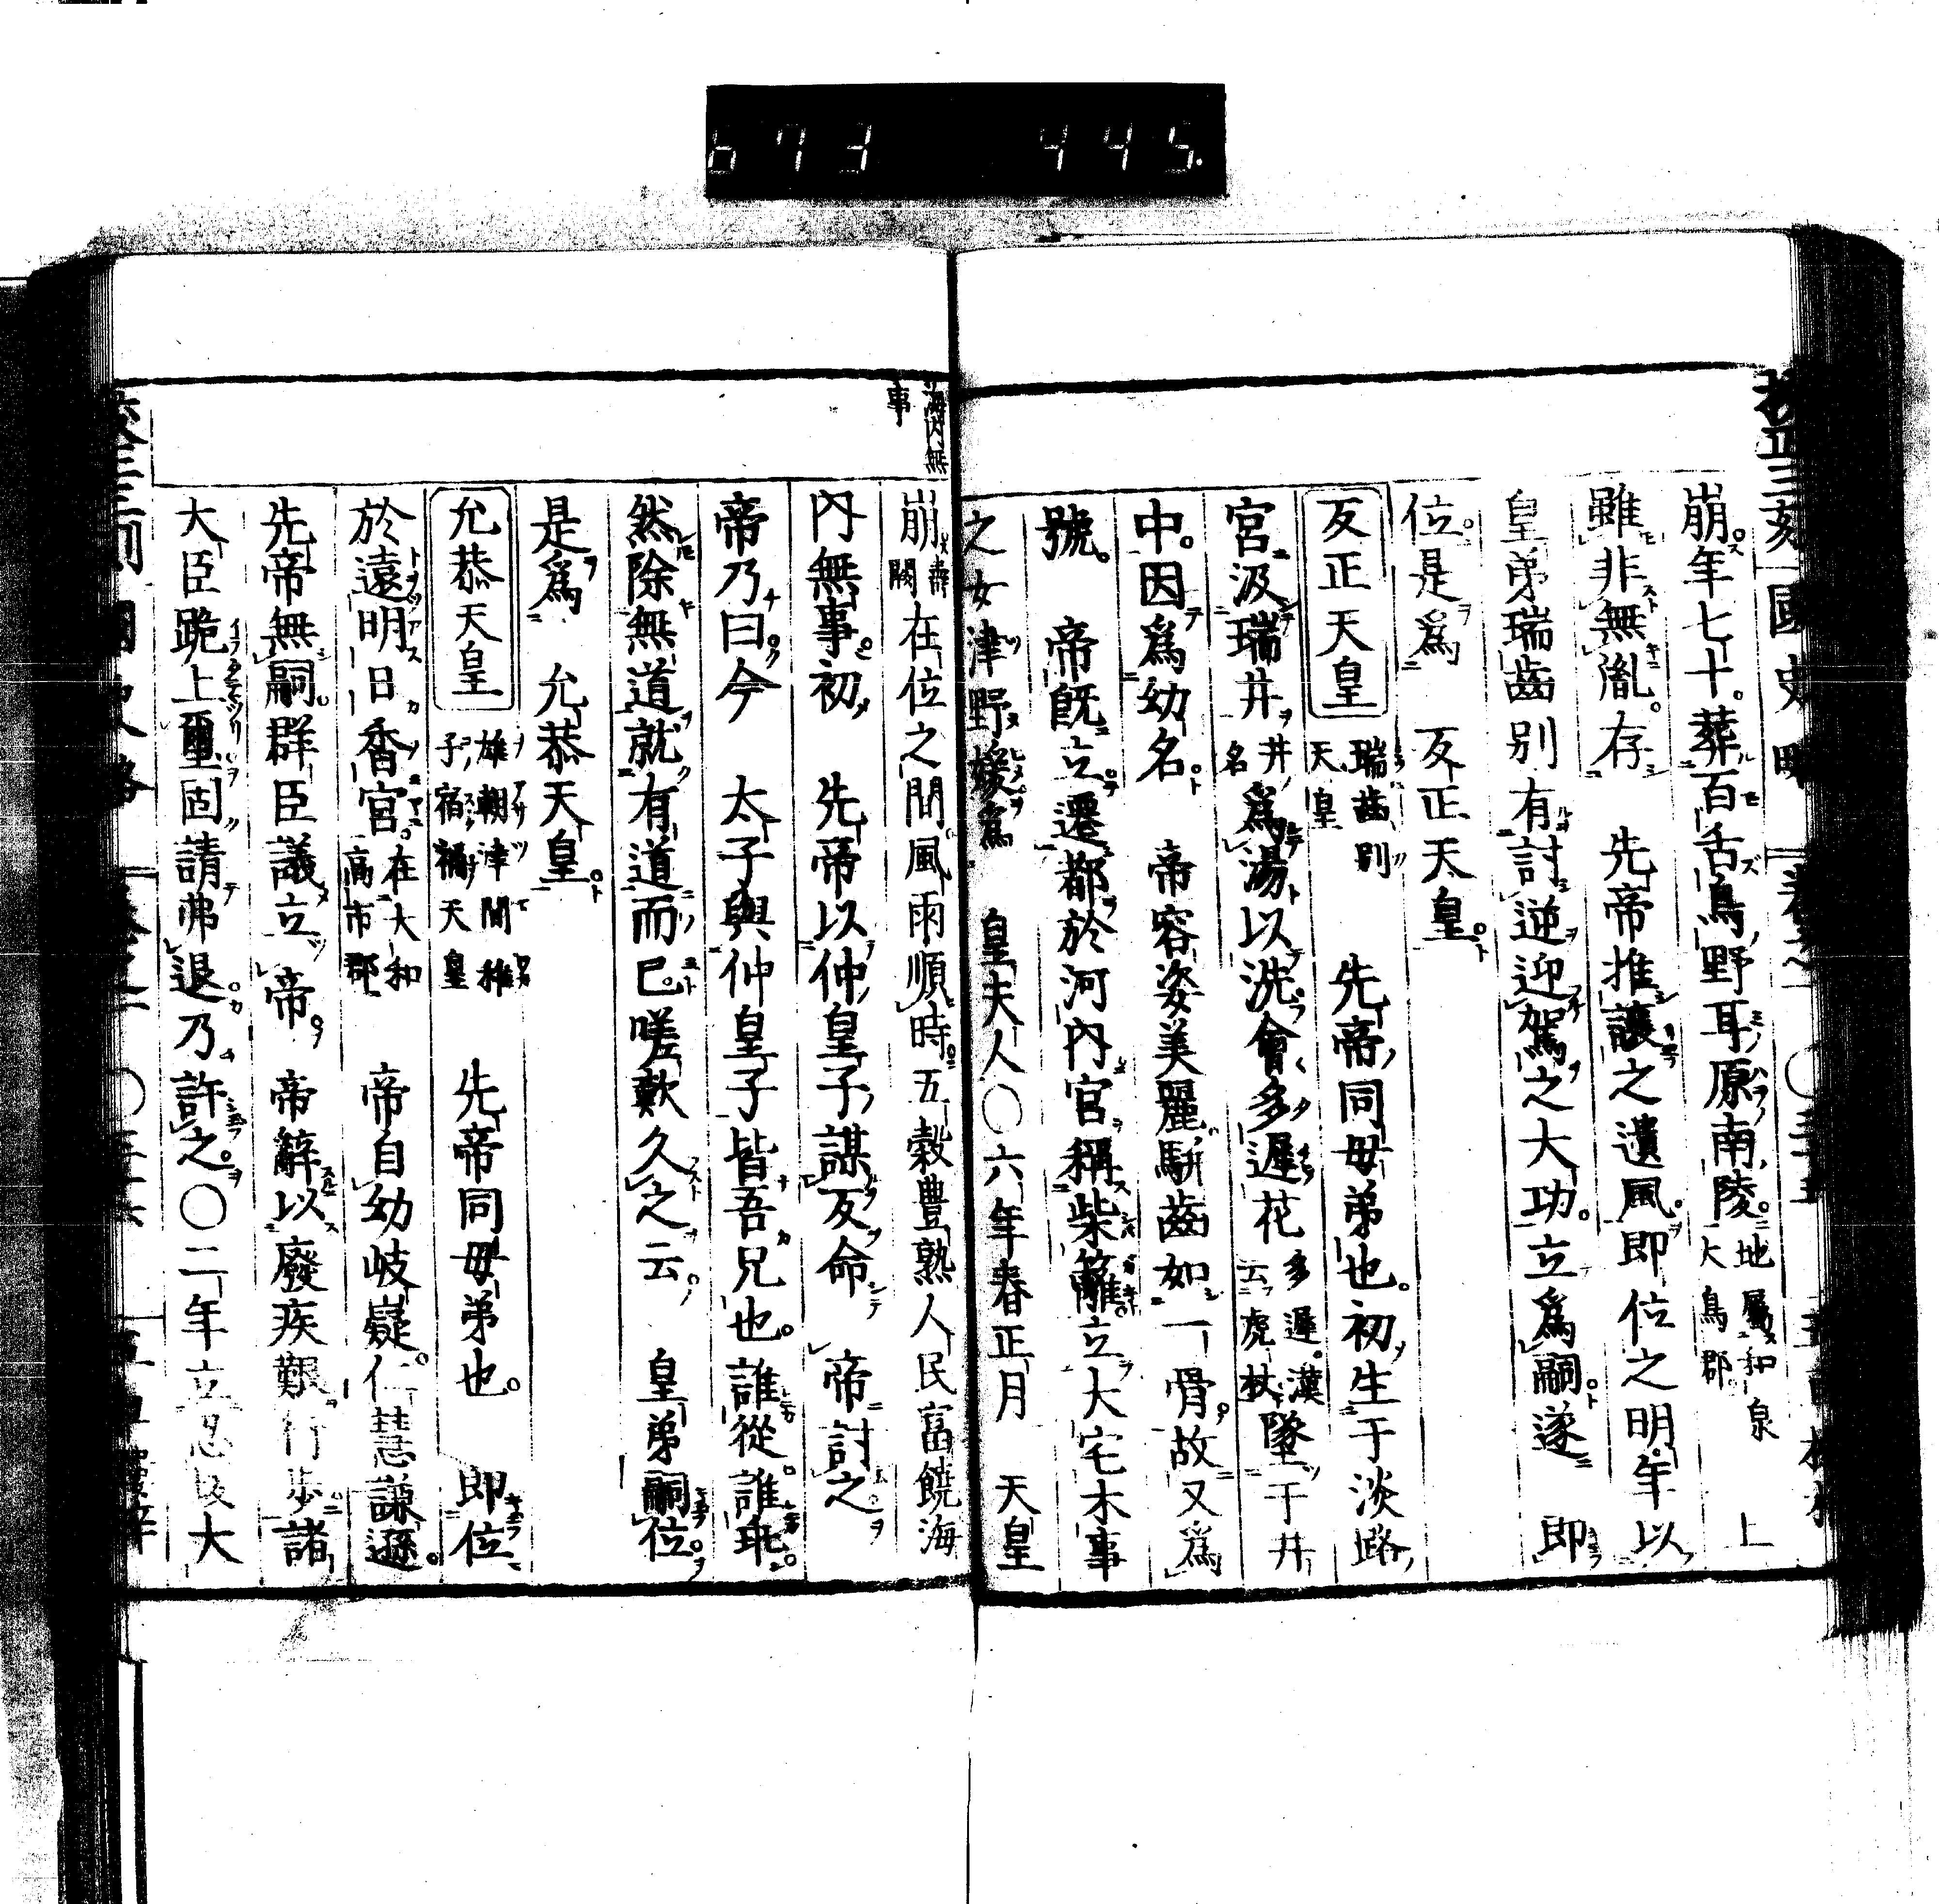 673 445.
崩年七十葬百舌鳥野耳原南陵地屬和泉大鳥郡 上
雖非無胤存 先帝推讓之遺風即位之明年以
皇弟瑞齒別有討逆迎駕之大功立爲嗣遂 即
位是爲 反正天皇
反正天皇瑞齒別天皇 先帝同母弟也初生于淡路
宮汲瑞井井名爲湯以洗會多遲花多遲漢云虎杖墜于井
中因爲幼名 帝容姿美麗駢齒如一骨故又爲
號 帝既立遷都於河內官稱柴籬立大宅木事
之女津野媛爲 皇夫人〇六年春正月 天皇
海內無事
崩壽闕在位之間風雨順時五穀豐熟人民富饒海
內無事初 先帝以仲皇子謀反命 帝討之
帝乃曰今 太子與仲皇子皆吾兄也誰從誰乖
然除無道就有道而已嗟歎久之云 皇弟嗣位
是爲 允恭天皇
允恭天皇雄朝津間稚子宿禰天皇 先帝同母弟也 即位
於遠明日香宮在大和高市郡 帝自幼岐嶷仁慧謙遜
先帝無嗣群臣議立 帝 帝辭以廢疾艱行步諸
大臣跪上璽固請弗退乃許之〇二年立忍坂大